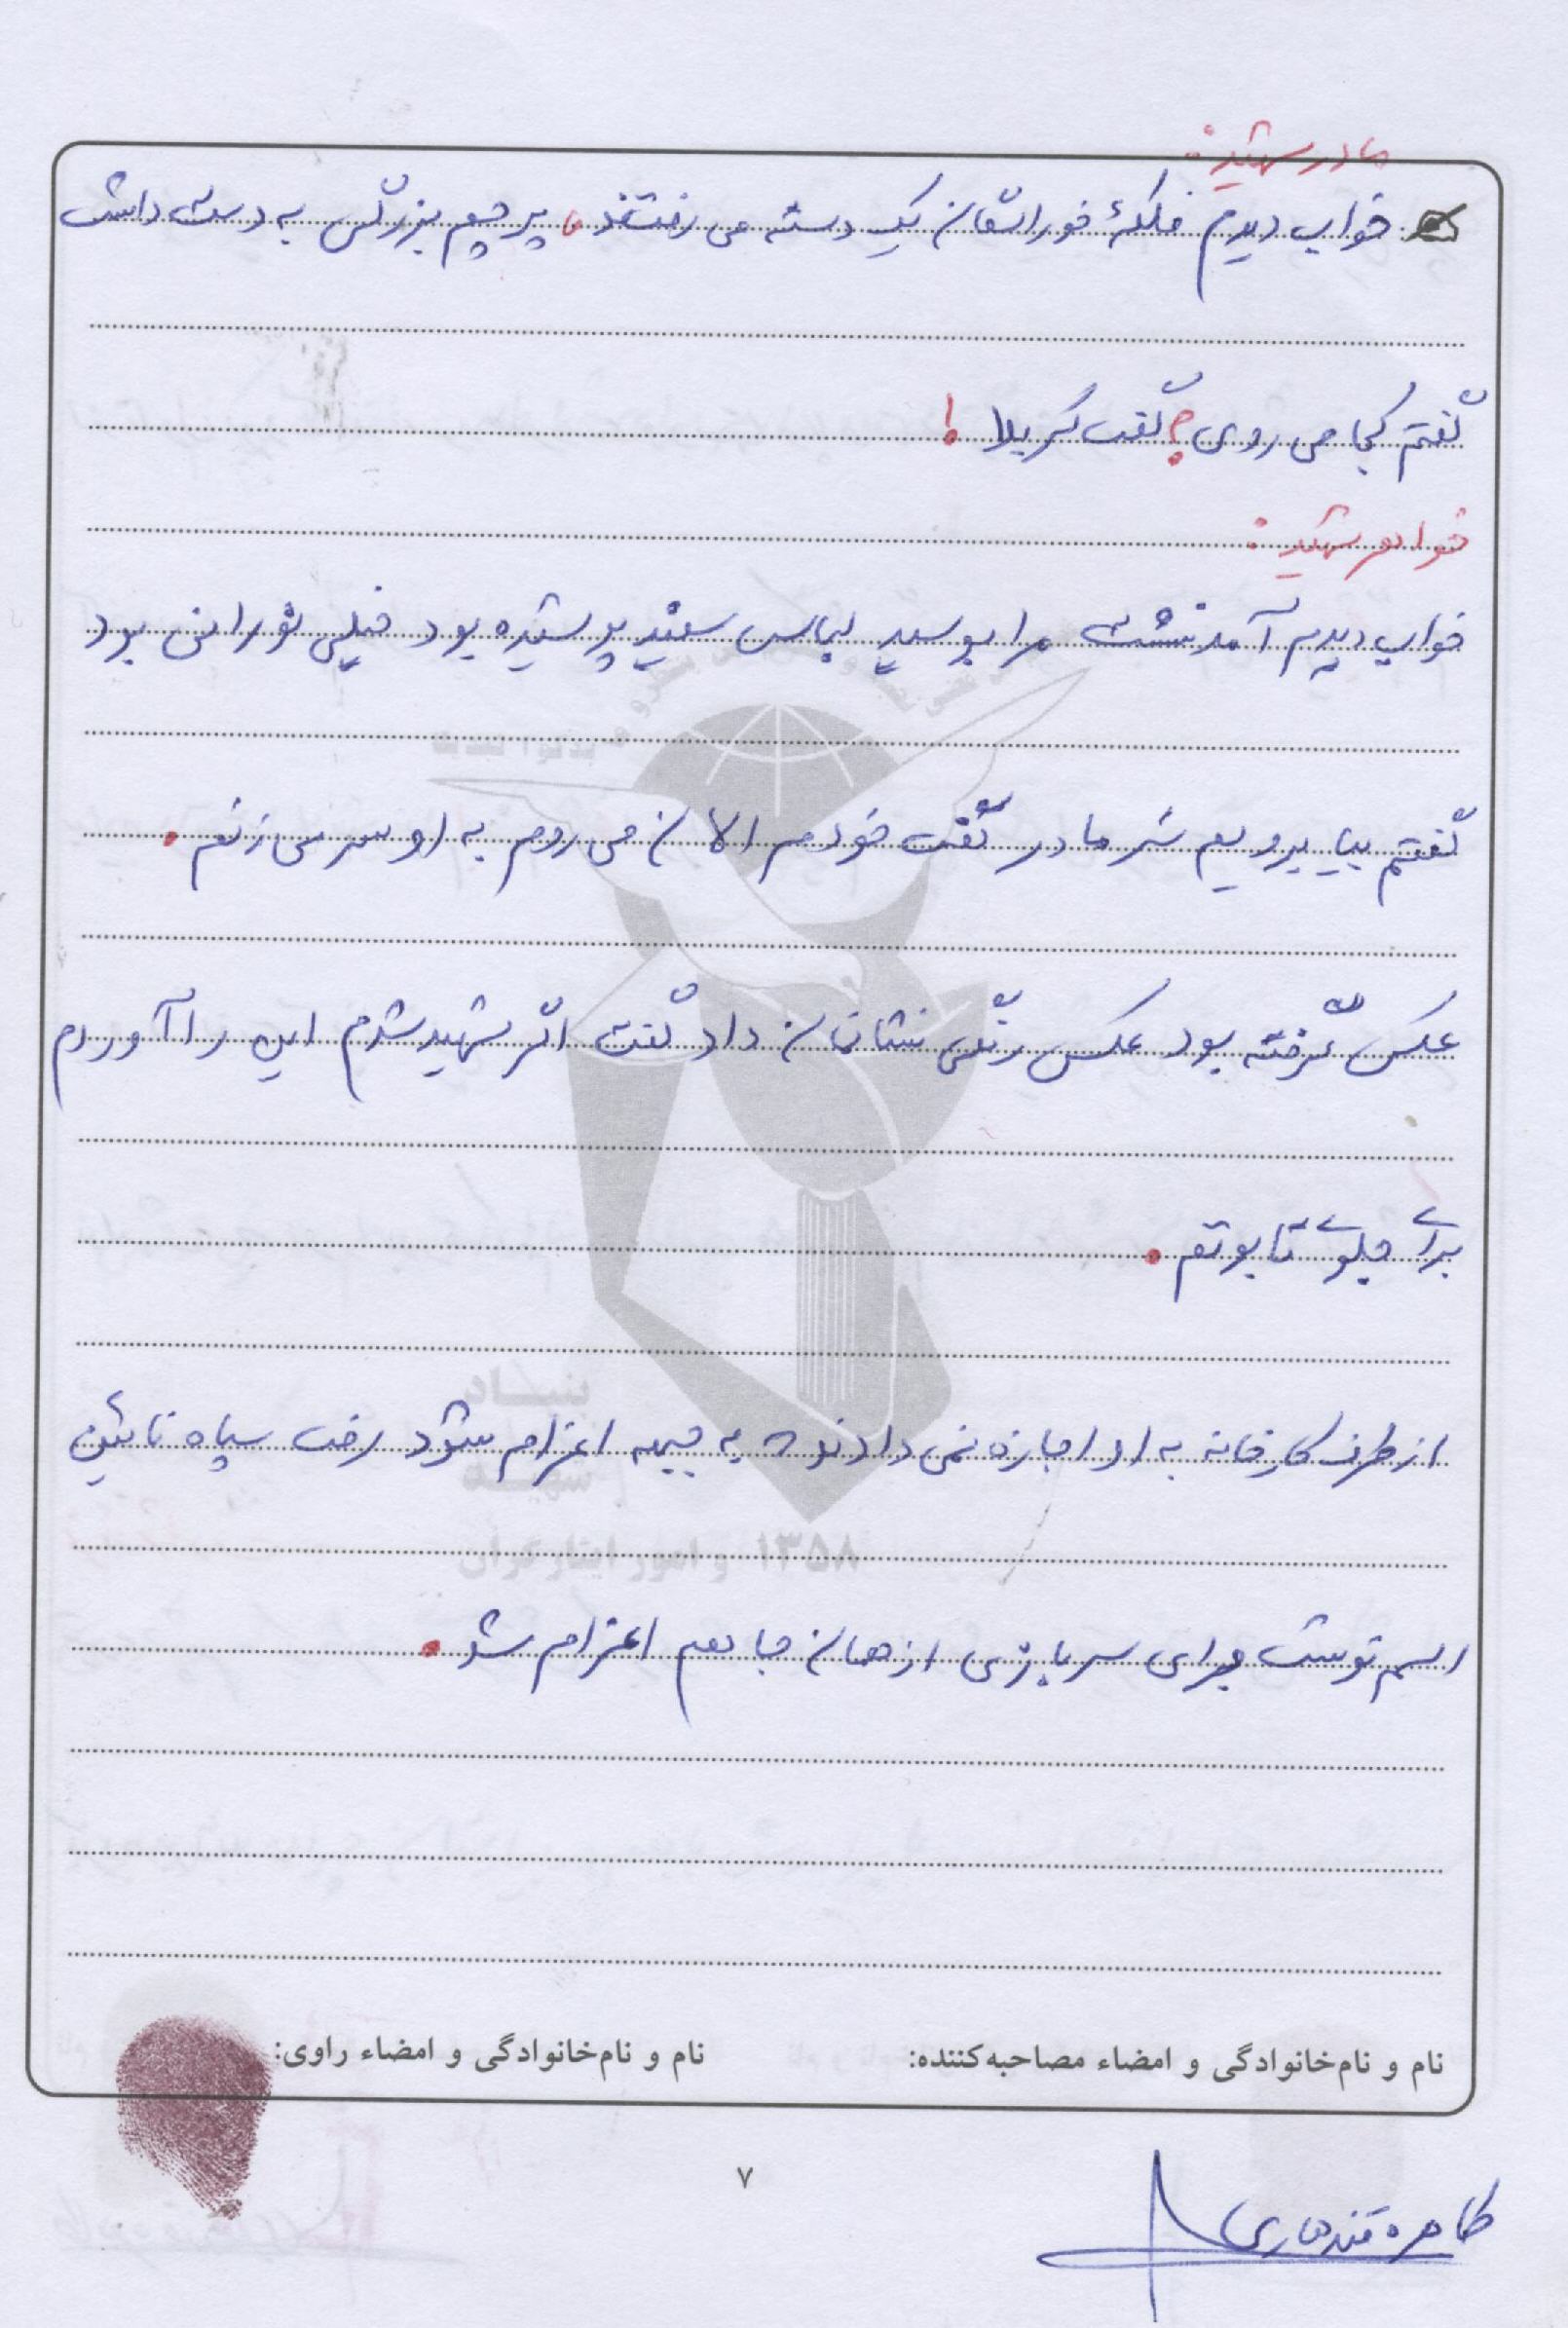 مادر شهید:
خواب دیدم فلکهٔ خوراسگان یک دسته می رفتند، پرچم بزرگی به دست داشت
گفتم کجا می روی؟ گفت کربلا!
خواهر شهید:
خواب دیدم آمد نشست مرا بوسید لباس سفید پوشیده بود خیلی نورانی بود
گفتم بیا برویم شهر مادر گفت خودم الان می روم به او سر می زنم.
عکس گرفته بود عکس رنگی نشانمان داد گفت اگر شهید شدم این را آوردم
برای جلوی تابوتم.
از طرف کارخانه به او اجازه نمی دادند به جبهه اعزام شود رفت سپاه نائین
اسم نوشت برای سربازی از همان جا هم اعزام شد.
بنیاد
شهید
و امور ایثارگران ۱۳۵۸
نام و نام‌خانوادگی و امضاء مصاحبه‌کننده: نام و نام‌خانوادگی و امضاء راوی:
۷
طاهره قندهاری